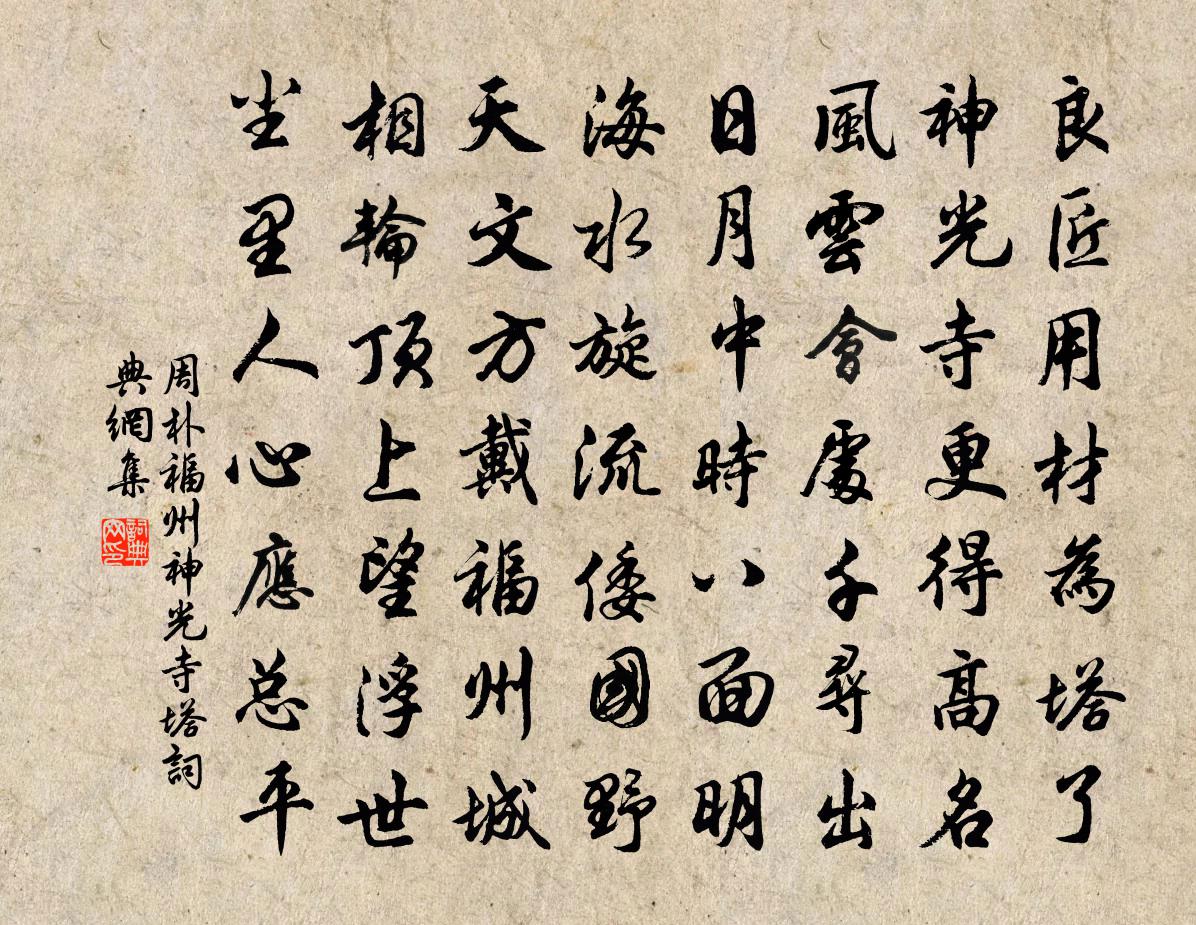 良匠用材為塔了
神光寺更得高名
風雲會處千尋出
日月中時八面明
海水旋流倭國野
天文方戴福州城
相輪頂上望浮世
尘里人心應总平
周朴福州神光寺塔詞
典網集
詞典网印